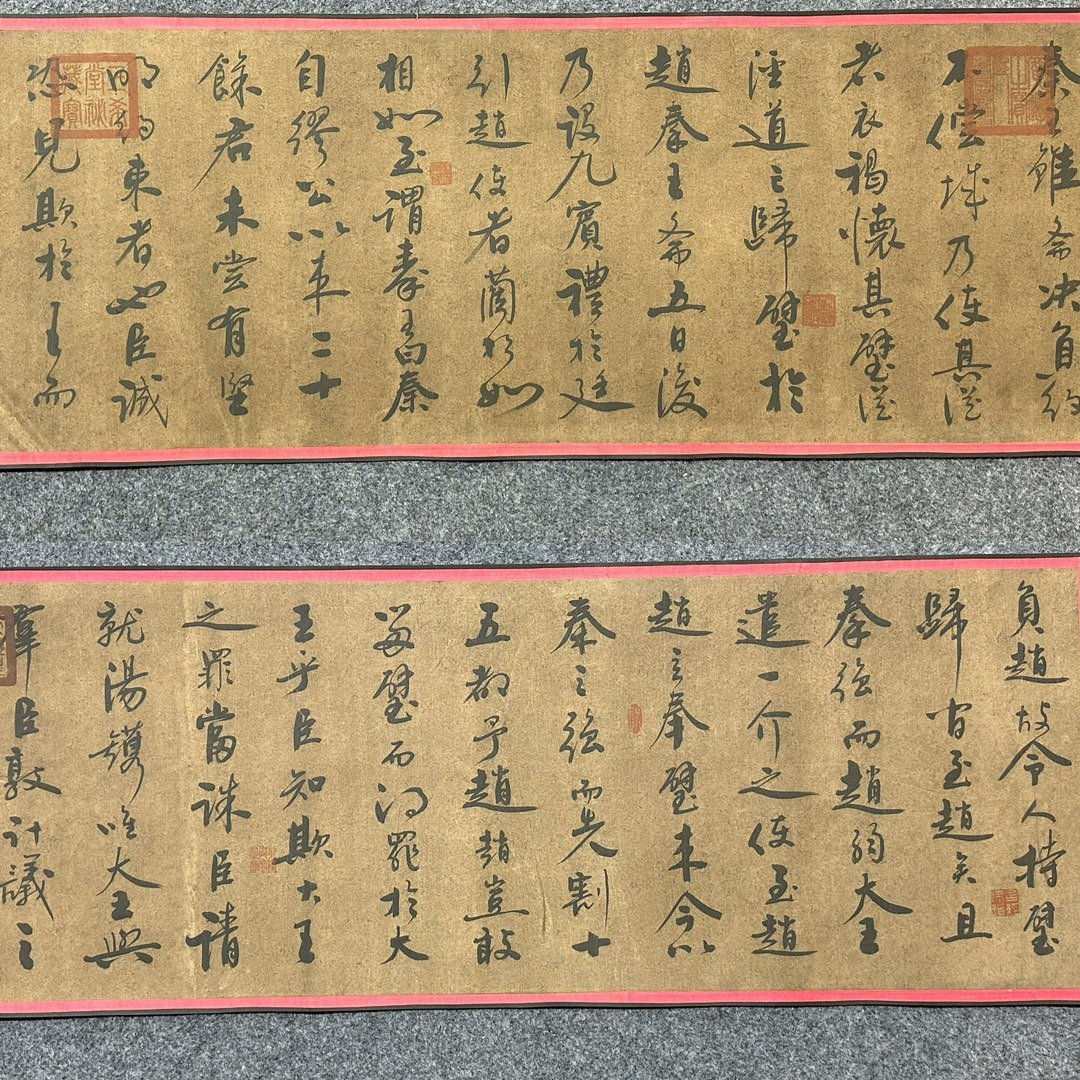 秦王雖齋决負約
不償城乃使其從
者衣褐懷其璧從
徑道亡歸璧於
趙秦王齋五日後
乃設九賓禮於廷
引趙使者藺相如
相如至謂秦王曰秦
自繆公以來二十
餘君未嘗有堅
明約束者也臣誠
恐見欺於王而
負趙故令人持璧
歸間至趙矣且
秦強而趙弱大王
遣一介之使至趙
趙立奉璧來今以
秦之強而先割十
五都予趙趙豈敢
留璧而得罪於大
王乎臣知欺大王
之罪當誅臣請
就湯鑊唯大王與
羣臣孰計議之